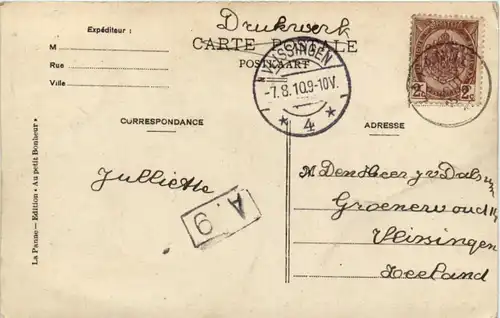 Drukwerk
Expéditeur :
CARTE POSTALE
POSTKAART
M
Rue
Ville
VLISSINGEN
-7.8.10.9-10V.
* 4 *
2c 2c
CORRESPONDANCE
ADRESSE
Julliette
A. 9
Den Heer J v Dals
Groenewoud
Vlissingen
Zeeland
La Panne — Edition • Au petit Bonheur •